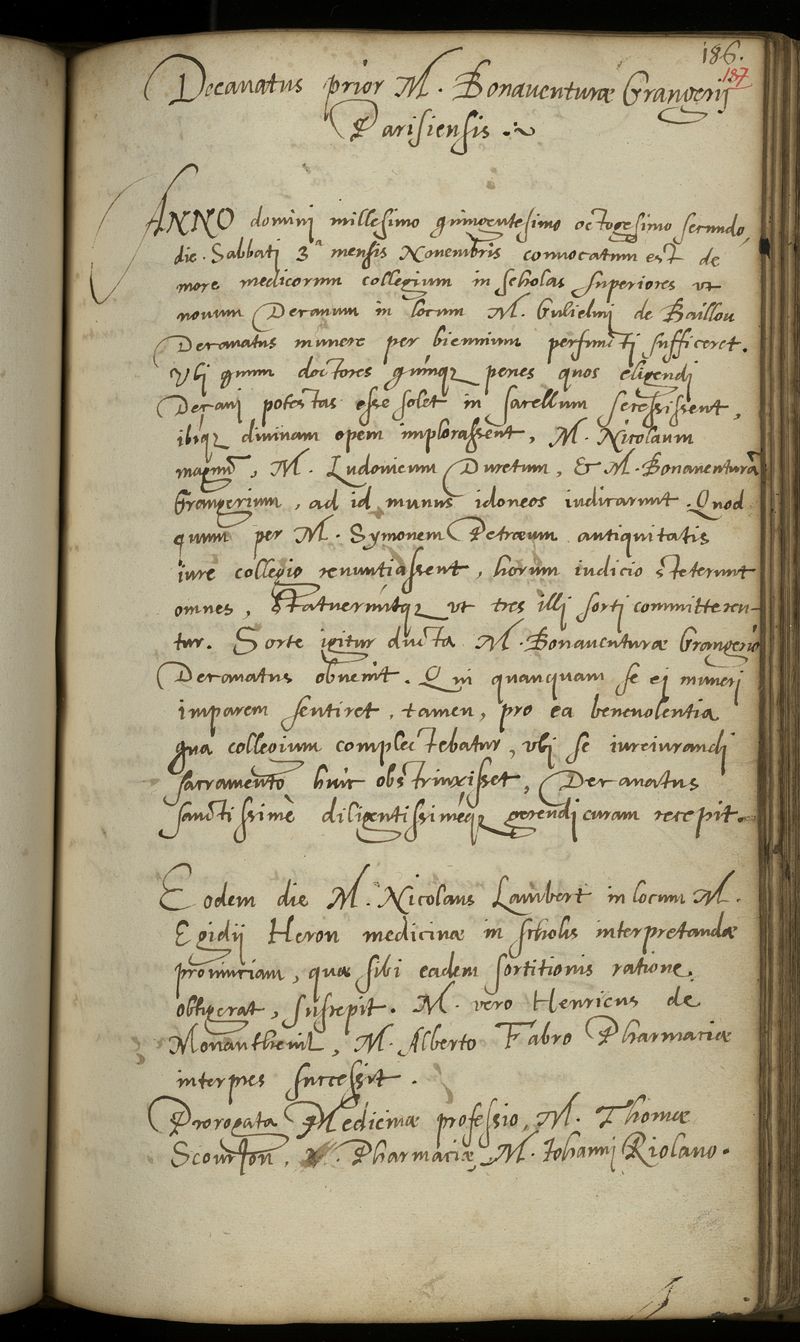 186.
187
Decanatus prior M. Bonauenturæ Grangerij
Parisiensis.
ANNO dominj millesimo quingentesimo octogesimo secundo,
die. Sabbatj 3ª mensis Nouembris conuocatum est de
more medicorum collegium in scholas superiores vt
nouum Decanum in locum M. Gulielmj de Baillou
Decanatus munere per biennium perfunctj sufficeret.
Vbj quum doctores quinq; penes quos eligendj
Decanj potestas esse solet in sacellum secessissent,
ibiq; diuinam opem implorassent, M. Nicolaum
magnū, M. Ludouicum Duretum, & M. Bonauenturā
Grangerium, ad id munus idoneos iudicarunt. Quod
quum per M. Symonem Petræum antiquitatis
iure collegio renuntiassent, horum iudicio steterunt
omnes, statueruntq; vt tres illj sorti committeren-
tur. Sorte igitur ducta M. Bonauenturæ Grangerio
Decanatus obuenit. Qui quanquam se ej munerj
imparem sentiret, tamen, pro ea beneuolentia
qua collegium complectebatur, vbj se iureiurandj
sacramento huic obstrinxisset, Decanatus
sanctissimè diligentissiméq; gerendj curam recepit.
Eodem die M. Nicolaus Lambert in locum M.
Egidij Heron medicinæ in scholis interpretandæ
prouinciam, quæ sibi eadem sortitionis ratione
obtigerat, suscepit. M. vero Henricus de
Monantheuil, M. Alberto Fabro Pharmaciæ
interpres successit.
Prorogata Medicinæ professio, M. Thomæ
Scourion, Pharmaciæ M. Iohannj Riolano.